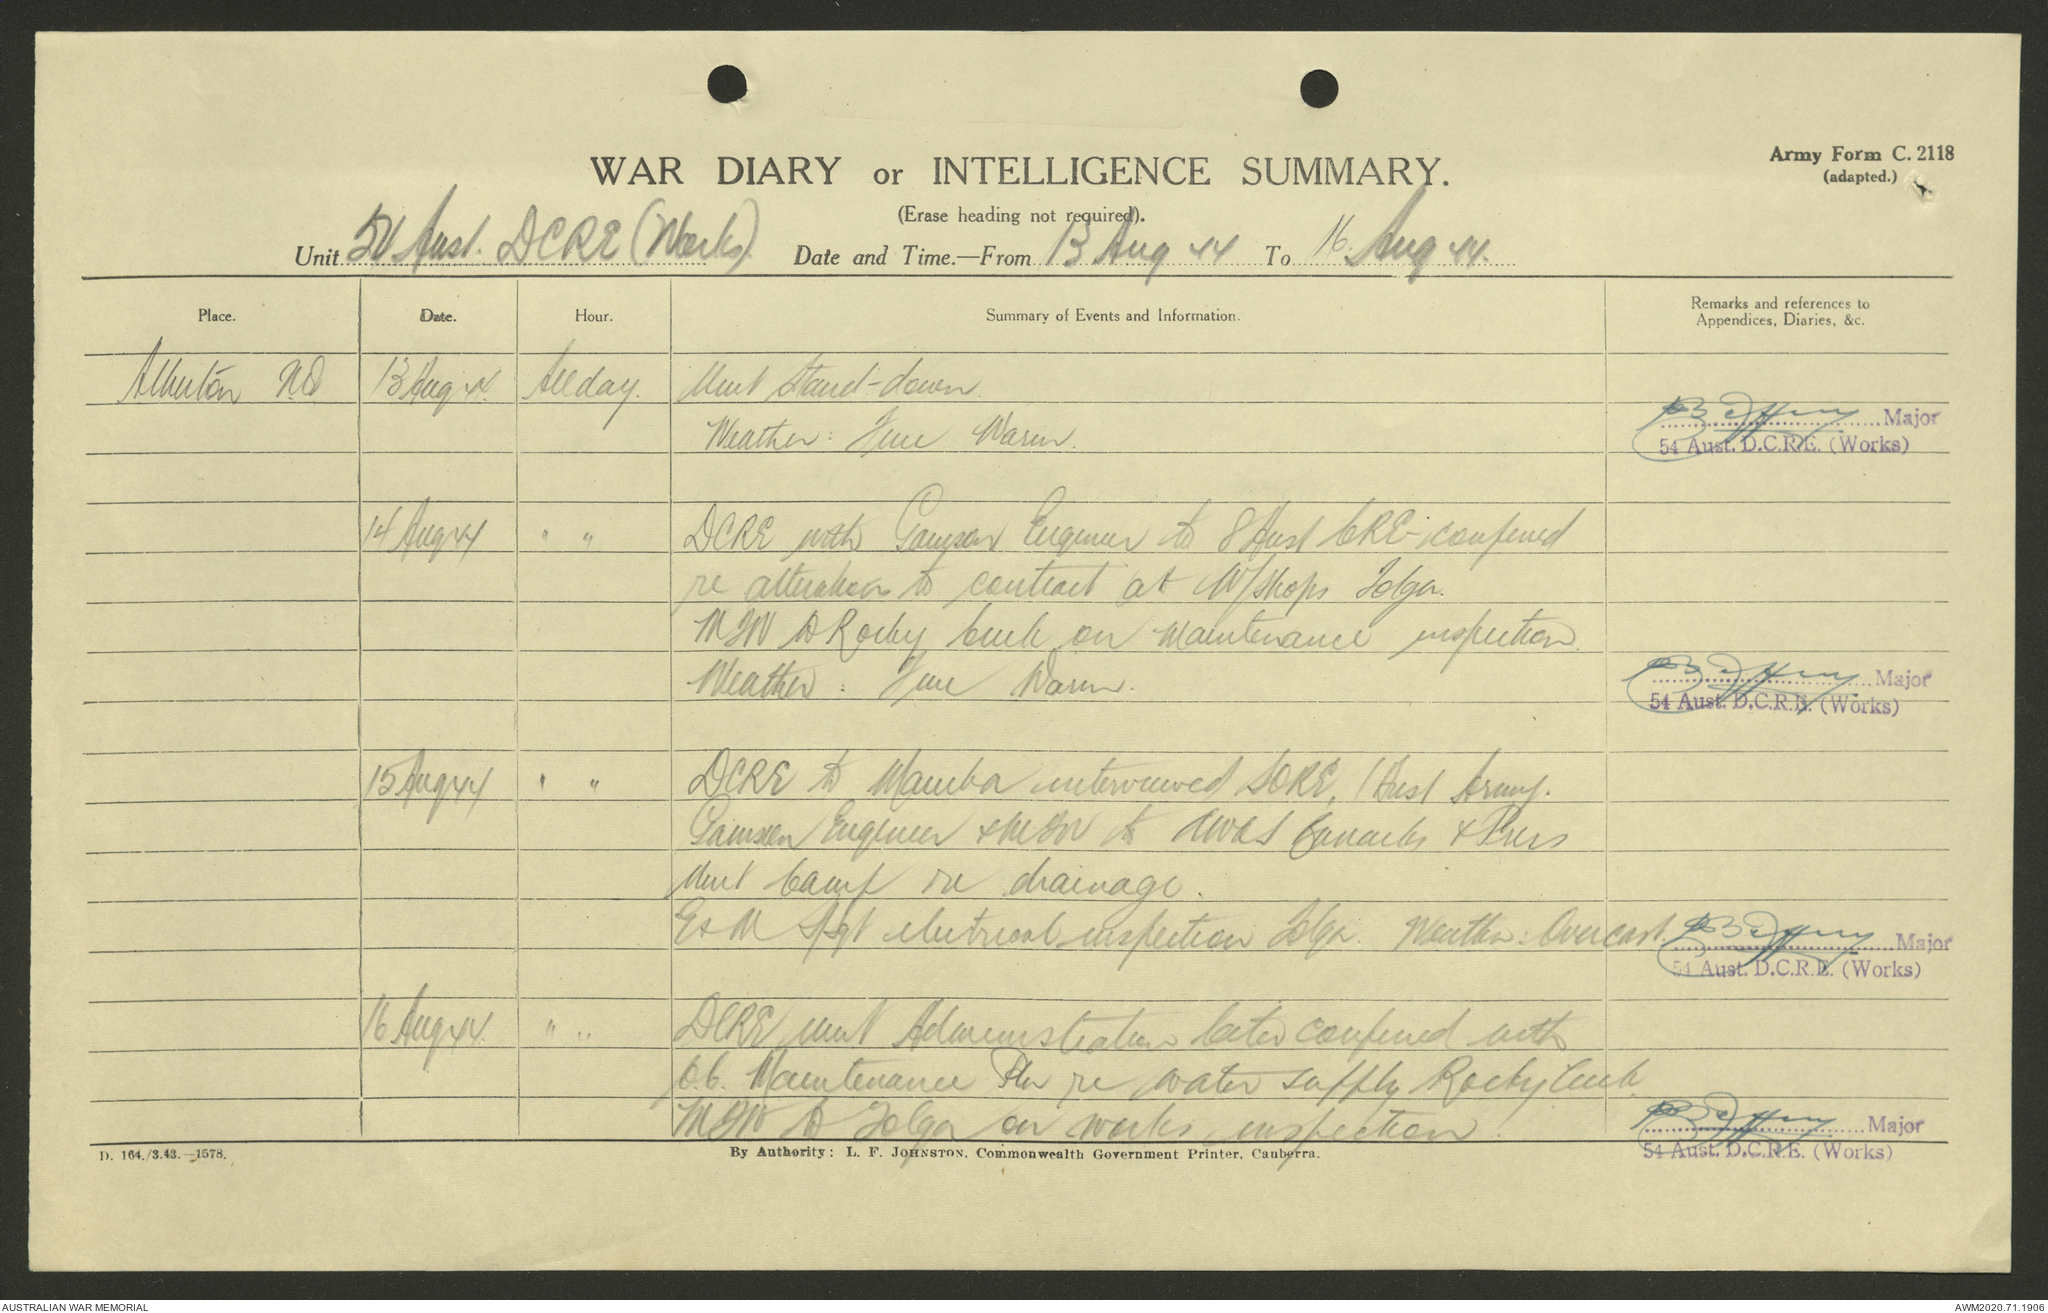 Army Form C. 2118
(adapted.)
WAR DIARY or INTELLIGENCE SUMMARY.
(Erase heading not required).
Unit 54 Aust. DCRE (Works). Date and Time.—From 13 Aug 44 To 16 Aug 44.
Place. Date. Hour. Summary of Events and Information. Remarks and references to
Appendices, Diaries, &c.
Atherton NQ 13 Aug 44. All day. Unit Stand-down.
Weather: Fine Warm.
Major
54 Aust. D.C.R.E. (Works)
14 Aug 44 " " DCRE with Garrison Engineer to 8 Aust CRE - confered
re alterations to contract at W/shops Tolga.
MFW to Rocky Creek on Maintenance inspection.
Weather: Fine Warm.
Major
54 Aust. D.C.R.E. (Works)
15 Aug 44 " " DCRE to interviewed 1 Aust Army.
Garrison Engineer & MFW to AWAS Barracks & Press
Unit Camp re drainage.
E & M Sgt electrical inspection Tolga. Weather: Overcast.
Major
54 Aust. D.C.R.E. (Works)
16 Aug 44. " " DCRE Unit Administration later confered with
O.C. Maintenance Pltn re water supply Rocky Creek
MFW to Tolga on works inspection.
Major
54 Aust. D.C.R.E. (Works)
D. 164./3.43.—1578. By Authority: L. F. JOHNSTON, Commonwealth Government Printer, Canberra.
AUSTRALIAN WAR MEMORIAL AWM2020.71.1906